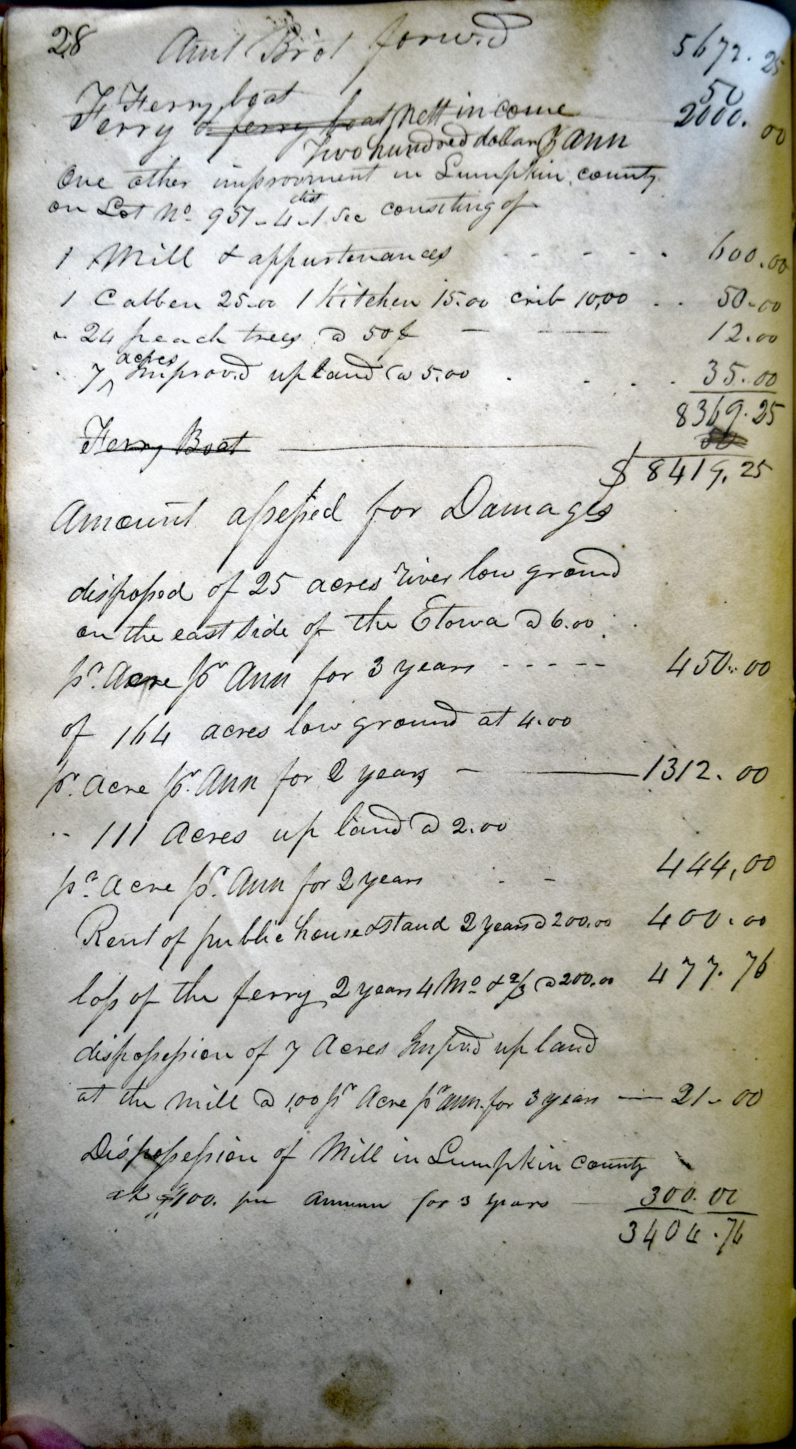 28 Amt Brot forwd 5672.25
Ferry boat 50
Ferry & ferry boat nett income 2000.00
Two hundred dollars ann
One other improvment in Lumpkin county
on Lot No. 951-4 dist 1 Sec consisting of
1 Mill & appurtenances - - - - - 600.00
1 Cabben 25.00 1 Kitchen 15.00 crib 10,00 .. 50.00
" 24 peach trees @ 50¢ — — 12.00
" 7 acres Improvd upland @ 5.00 . . . . 35.00
8369.25
Ferry Boat
$ 8419.25
Amount assessed for Damages
disposed of 25 acres river low ground
on the east side of the Etowa @ 6.00
pr. Acre pr Ann for 3 years - - - - - 450.00
of 164 acres low ground at 4.00
pr. acre pr. Ann for 2 years — 1312.00
" 111 acres up land @ 2.00
pr. acre pr. Ann for 2 years - - 444,00
Rent of public house & stand 2 years @ 200.00 400.00
loss of the ferry 2 years 4 Mo & 2/3 @ 200.00 477.76
dispossession of 7 Acres Impvd up land
at the mill @ 1,00 pr Acre pr ann. for 3 years — 21.00
Dispossession of Mill in Lumpkin county
at $100. per annum for 3 years 300.00
3404.76